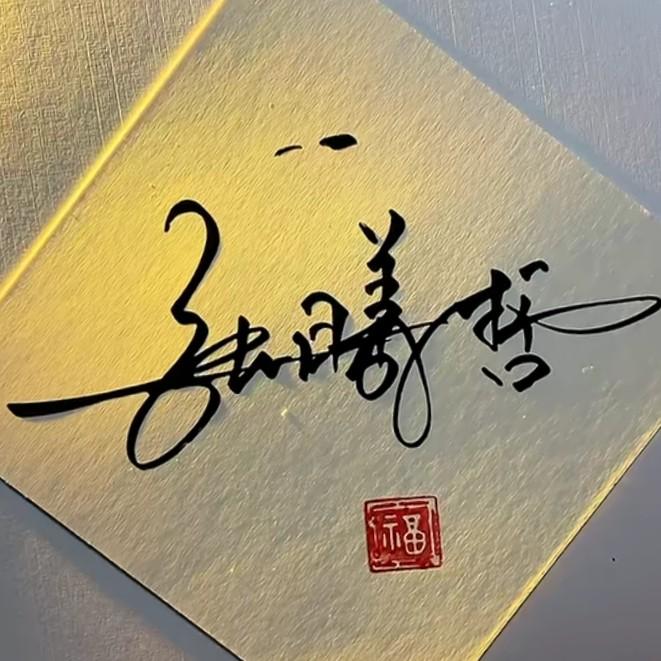 张曦哲
福